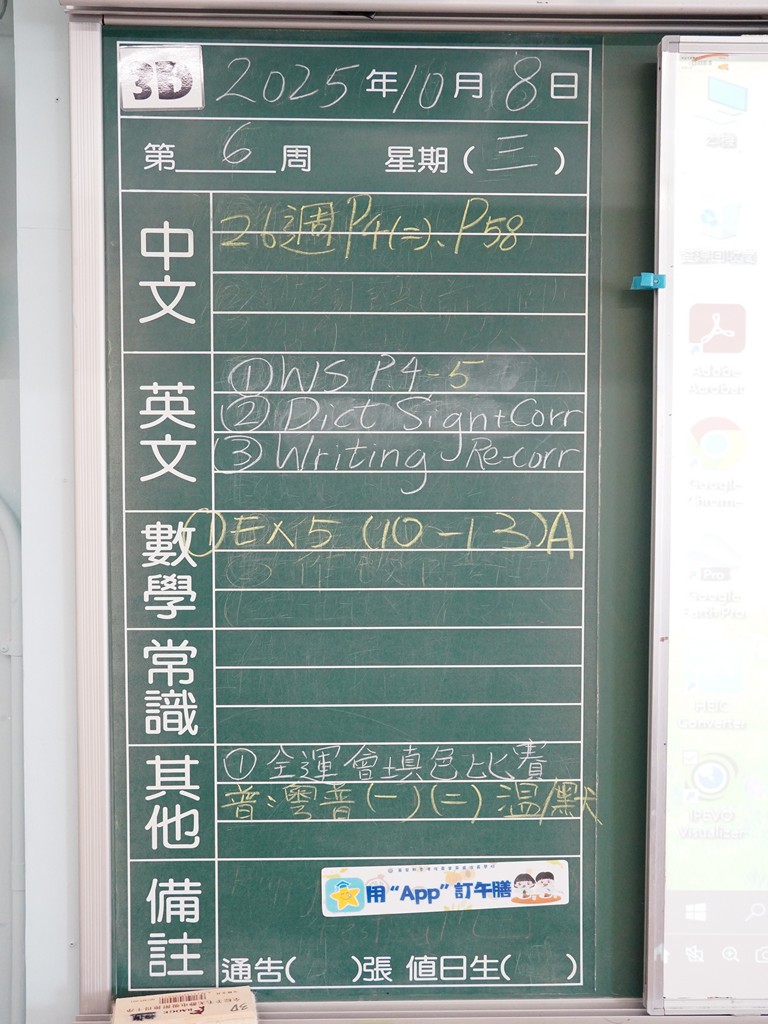 3D 2025年10月8日
第6周 星期(三)
中文
26週 P4(二)、P58
英文
①WS P.4-5
②Dict Sign+Corr
③Writing Re-corr
數學
①Ex5 (10-13)A
常識
其他
①全運會填色比賽
普:粵普(一)(二)溫/默
備註
用“App”訂午膳
通告( )張 值日生( )
本機
Adobe
Acrobat
Google
Chrome
Pro
Google
Earth Pro
Converter
IPEVO
Visualizer
3D